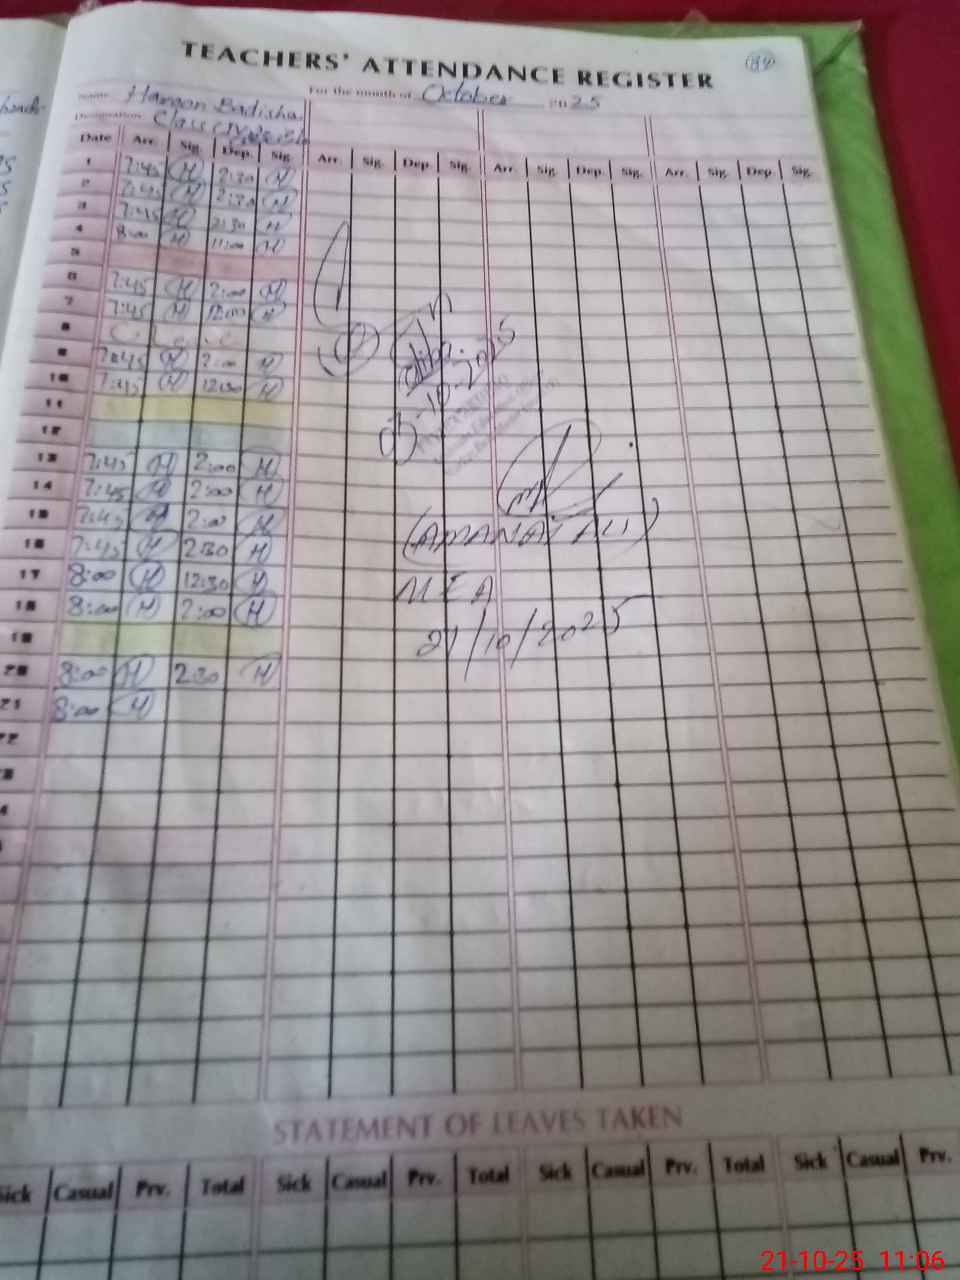 TEACHERS' ATTENDANCE REGISTER
Name Haroon Badisha For the month of October 2025
Designation Class IV
Date Arr. Sig. Dep. Sig. Arr. Sig. Dep. Sig. Arr. Sig. Dep. Sig. Arr. Sig. Dep. Sig.
1 7:45 H 2:30 H
2 7:45 H 2:30 H
3 7:45 H 2:30 H
4 8:00 H 11:00 H
5
6 7:45 H 2:00 H
7 7:45 H 12:00 H
8 C. Leave
9 7:45 H 2:00 H
10 7:45 H 12:30 H
11
12
13 7:45 H 2:00 H
14 7:45 H 2:00 H
15 7:45 H 2:00 H
16 7:45 H 2:30 H
17 8:00 H 12:30 H
18 8:00 H 2:00 H
19
20 8:00 H 2:30 H
21 8:00 H
22
03-10-2025
(AMANAT ALI)
MEA
21/10/2025
STATEMENT OF LEAVES TAKEN
Sick Casual Prv. Total Sick Casual Prv. Total Sick Casual Prv. Total Sick Casual Prv.
21-10-25 11:06